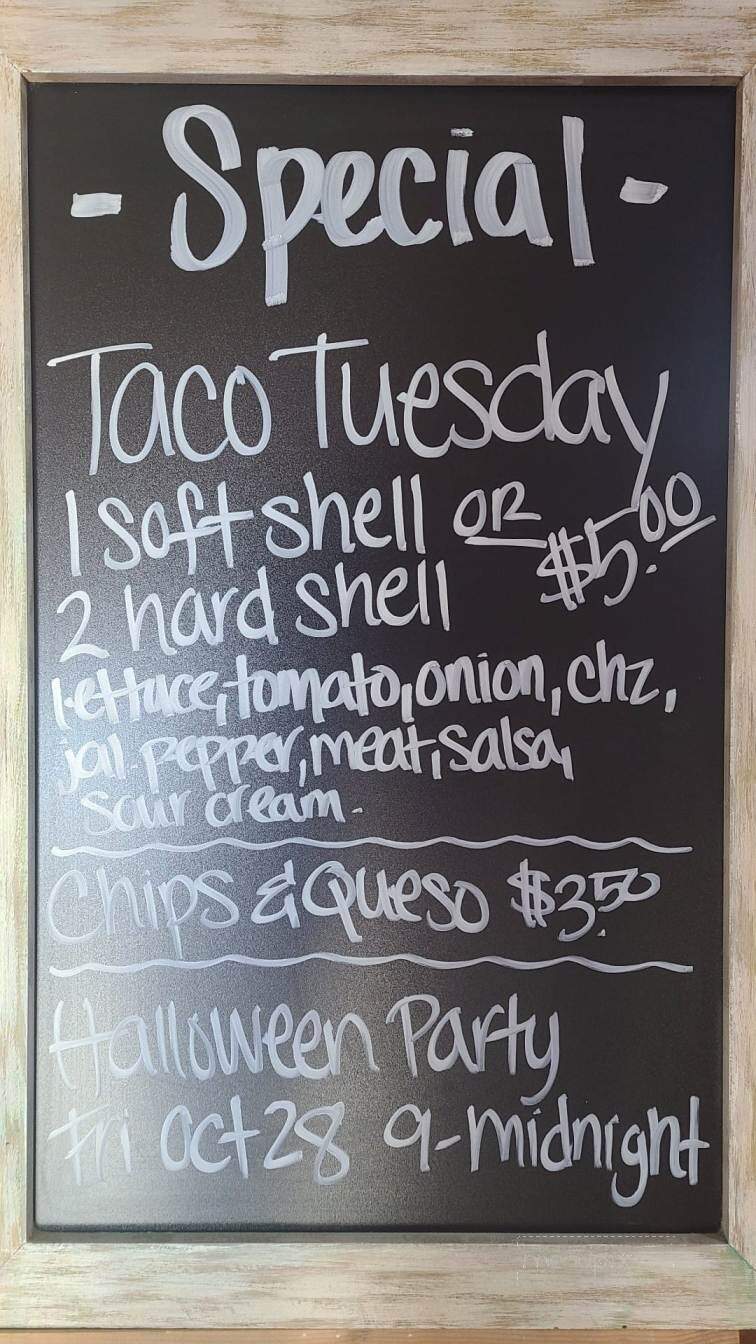 - Special -
Taco Tuesday
1 soft shell OR
2 hard shell $5.00
lettuce, tomato, onion, chz,
jal. pepper, meat, salsa,
sour cream.
Chips & Queso $3.50
Halloween Party
Fri Oct 28 9-midnight